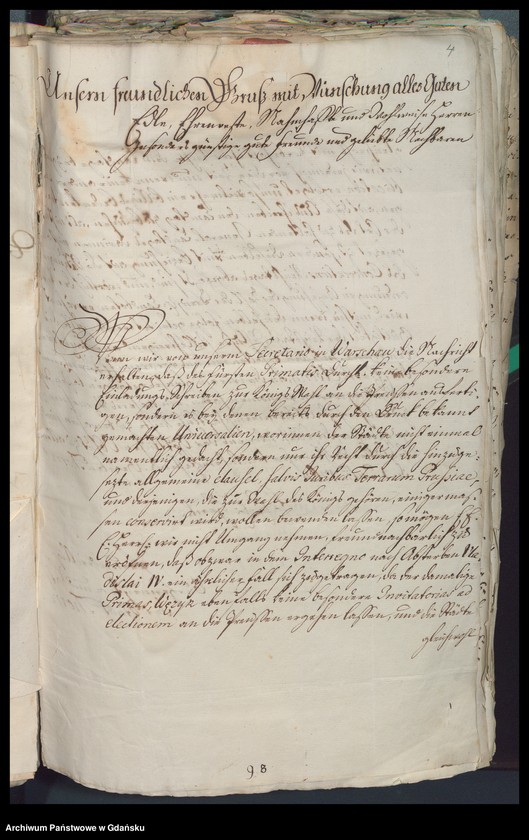 4
Unsern freundlichen Gruß mit Wünschung alles Guten
Edle, Ehrenveste, Nahmhaffte und Wohlweise Herren
Besonders günstige gute Freunde und geliebte Nachbaren
Wenn wir von unserm Secretario in Warschau die Nachricht
erhalten, daß des Fürsten Primatis Durchl. keine besondere
Einladungs Schreiben zur Königs Wahl an die Preußen ausferti-
gen, sondern es bey denen bereits durch den Druck bekannt
gemachten Universalien, worinnen der Städte nicht einmal
nahmentlich gedacht, sondern nur ihr Recht durch die hinzuge-
setzte allgemeine Clausel, salvis Juribus Terrarum Prussiae,
und derjenigen, die zur Wahl des Königs gehören, einigermas-
sen conserviret wird, wollen bewenden lassen, so mögen Ew.
Herrl. wir nicht Umgang nehmen, freundnachbarlich zu
eröfnen, daß obzwar in dem Interregno nach Absterben Vla-
dislai IV. ein ähnlicher Fall sich zugetragen, da der damalige
Primas, Węzyk ebenfalls keine besondere Invitatorias ad
electionem an die Preussen ergehen lassen, und die Städte
gleichwohl
9 B
Archiwum Państwowe w Gdańsku